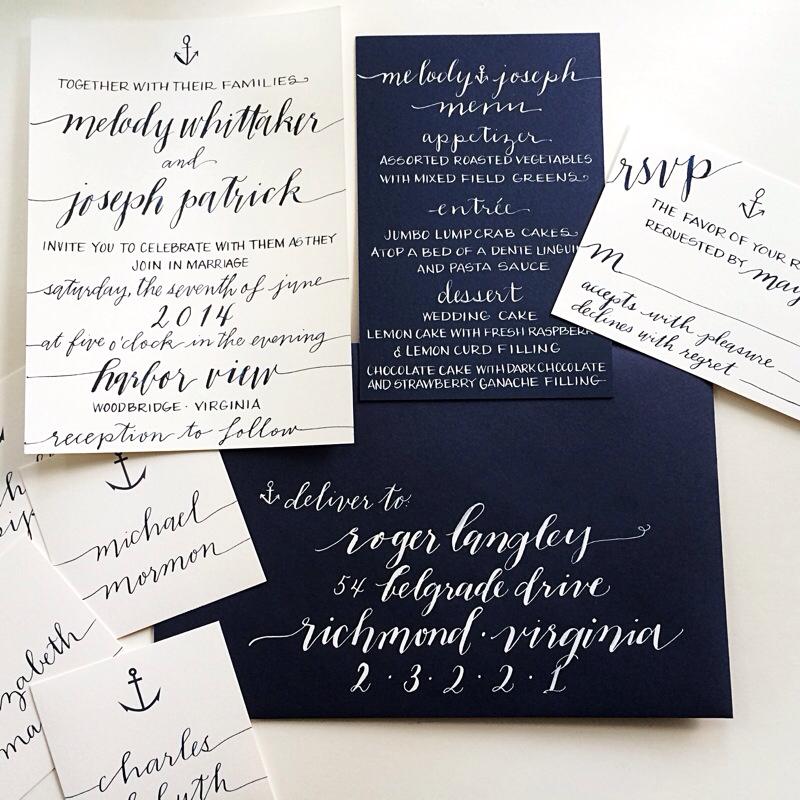 TOGETHER WITH THEIR FAMILIES
melody whittaker
and
joseph patrick
INVITE YOU TO CELEBRATE WITH THEM AS THEY
JOIN IN MARRIAGE
saturday, the seventh of june
2014
at five o'clock in the evening
harbor view
WOODBRIDGE · VIRGINIA
reception to follow
melody joseph
menu
appetizer
ASSORTED ROASTED VEGETABLES
WITH MIXED FIELD GREENS
entrée
JUMBO LUMP CRAB CAKES
ATOP A BED OF A DENTE LINGUI
AND PASTA SAUCE
dessert
WEDDING CAKE
LEMON CAKE WITH FRESH RASPBERR
& LEMON CURD FILLING
CHOCOLATE CAKE WITH DARK CHOCOLATE
AND STRAWBERRY GANACHE FILLING
rsvp
THE FAVOR OF YOUR R
REQUESTED BY may
M
accepts with pleasure
declines with regret
deliver to:
roger langley
54 belgrade drive
richmond · virginia
2·3·2·2·1
michael
mormon
zabeth
ma
charles